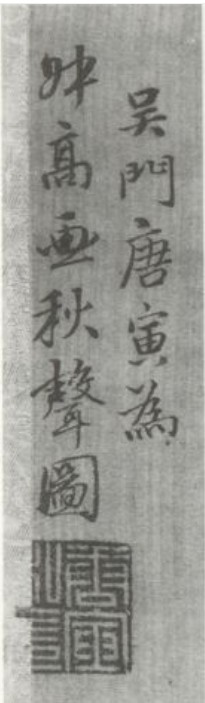 吳門唐寅為
高画秋聲圖
唐寅